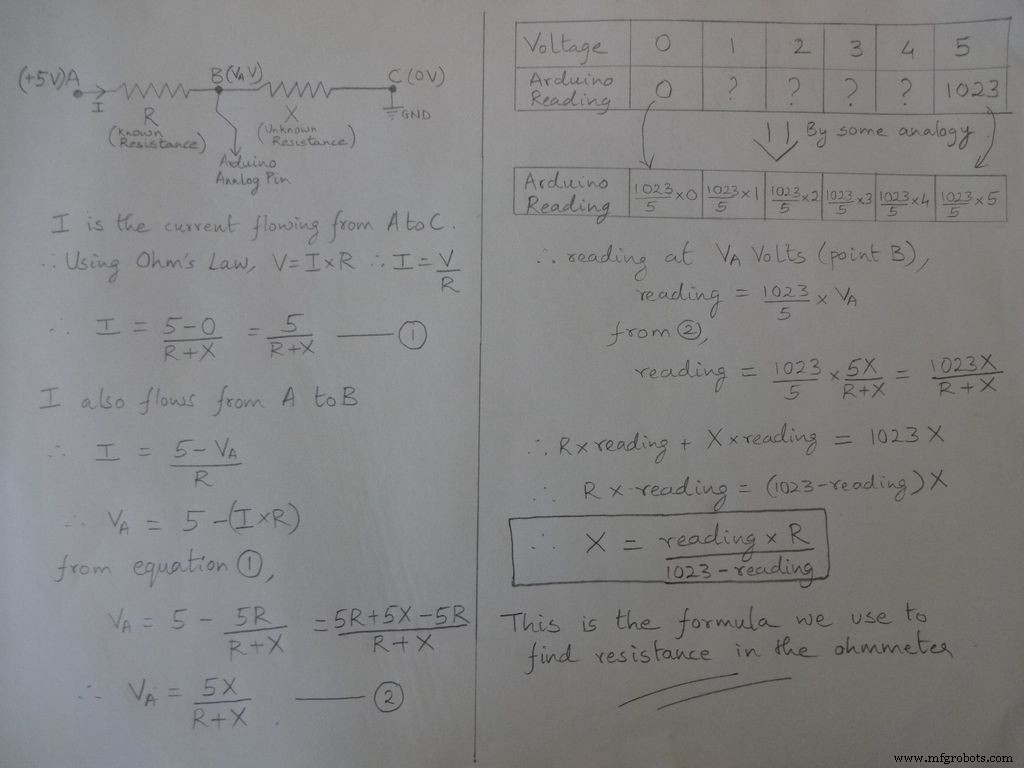 (+5V)A
B(VA V)
C(0V)
I
R
(Known Resistance)
X
(Unknown Resistance)
GND
Arduino
Analog Pin
I is the current flowing from A to C.
∴ Using Ohm's Law, V=I×R ∴ I=V/R
∴ I = (5-0)/(R+X) = 5/(R+X) —— ①
I also flows from A to B
∴ I = (5-VA)/R
∴ VA = 5-(I×R)
from equation ①,
VA = 5 - 5R/(R+X) = (5R+5X-5R)/(R+X)
∴ VA = 5X/(R+X) . —— ②
Voltage 0 1 2 3 4 5
Arduino Reading 0 ? ? ? ? 1023
By some analogy
Arduino Reading 1023/5×0 1023/5×1 1023/5×2 1023/5×3 1023/5×4 1023/5×5
∴ reading at VA Volts (point B),
reading = 1023/5 × VA
from ②,
reading = 1023/5 × 5X/(R+X) = 1023X/(R+X)
∴ R×reading + X×reading = 1023 X
∴ R×reading = (1023-reading) X
∴ X = (reading × R)/(1023-reading)
This is the formula we use to
find resistance in the ohmmeter
www.mfgrobots.com